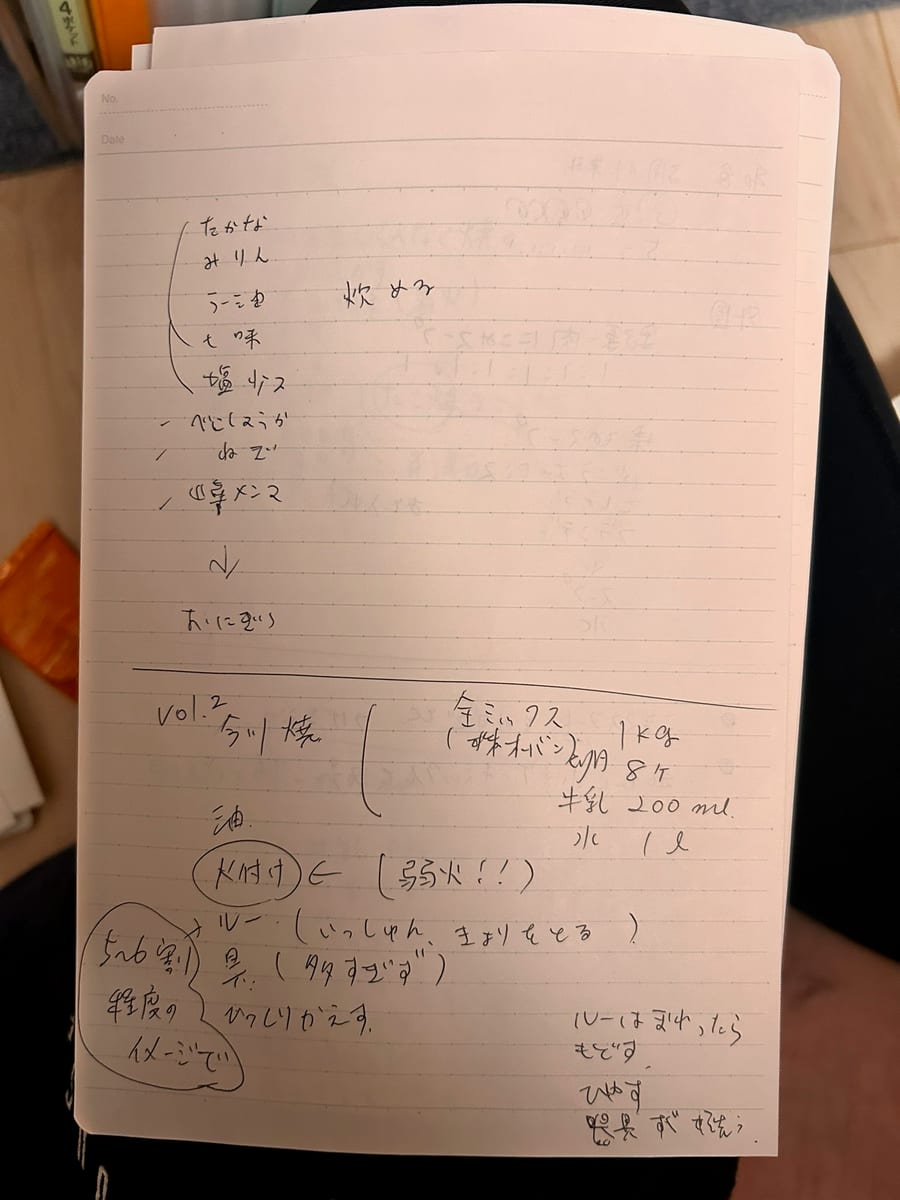 4ポケット
No.
Date
たかな
みりん
ラー油
炒める
七味
塩少々
べにしょうが
ねぎ
メンマ
↓
おにぎり
vol.2
今川焼
金ミックス
1kg
卵 8ヶ
牛乳 200ml.
水 1l
油.
火付け ← (弱火!!)
→ルー (いっしゅん、きょりをとる)
具 (多すぎず)
ひっくりかえす.
5~6割
程度の
イメージで
ルーはまわったら
もどす.
ひやす
器具 すぐ 洗う.